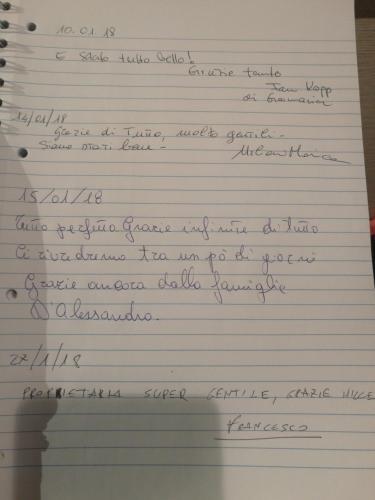 10.01.18
È stato tutto bello!
Grazie tanto
Jan Kopp
di Germania
14/01/18
Grazie di Tutto, molto gentili -
Siamo stati bene -
15/01/18
Tutto perfetto Grazie infinite di tutto
Ci rivedremo tra un pò di giorni
Grazie ancora dalla famiglia
D'Alessandro.
27/1/18
PROPRIETARIA SUPER GENTILE, GRAZIE MILLE
FRANCESCO